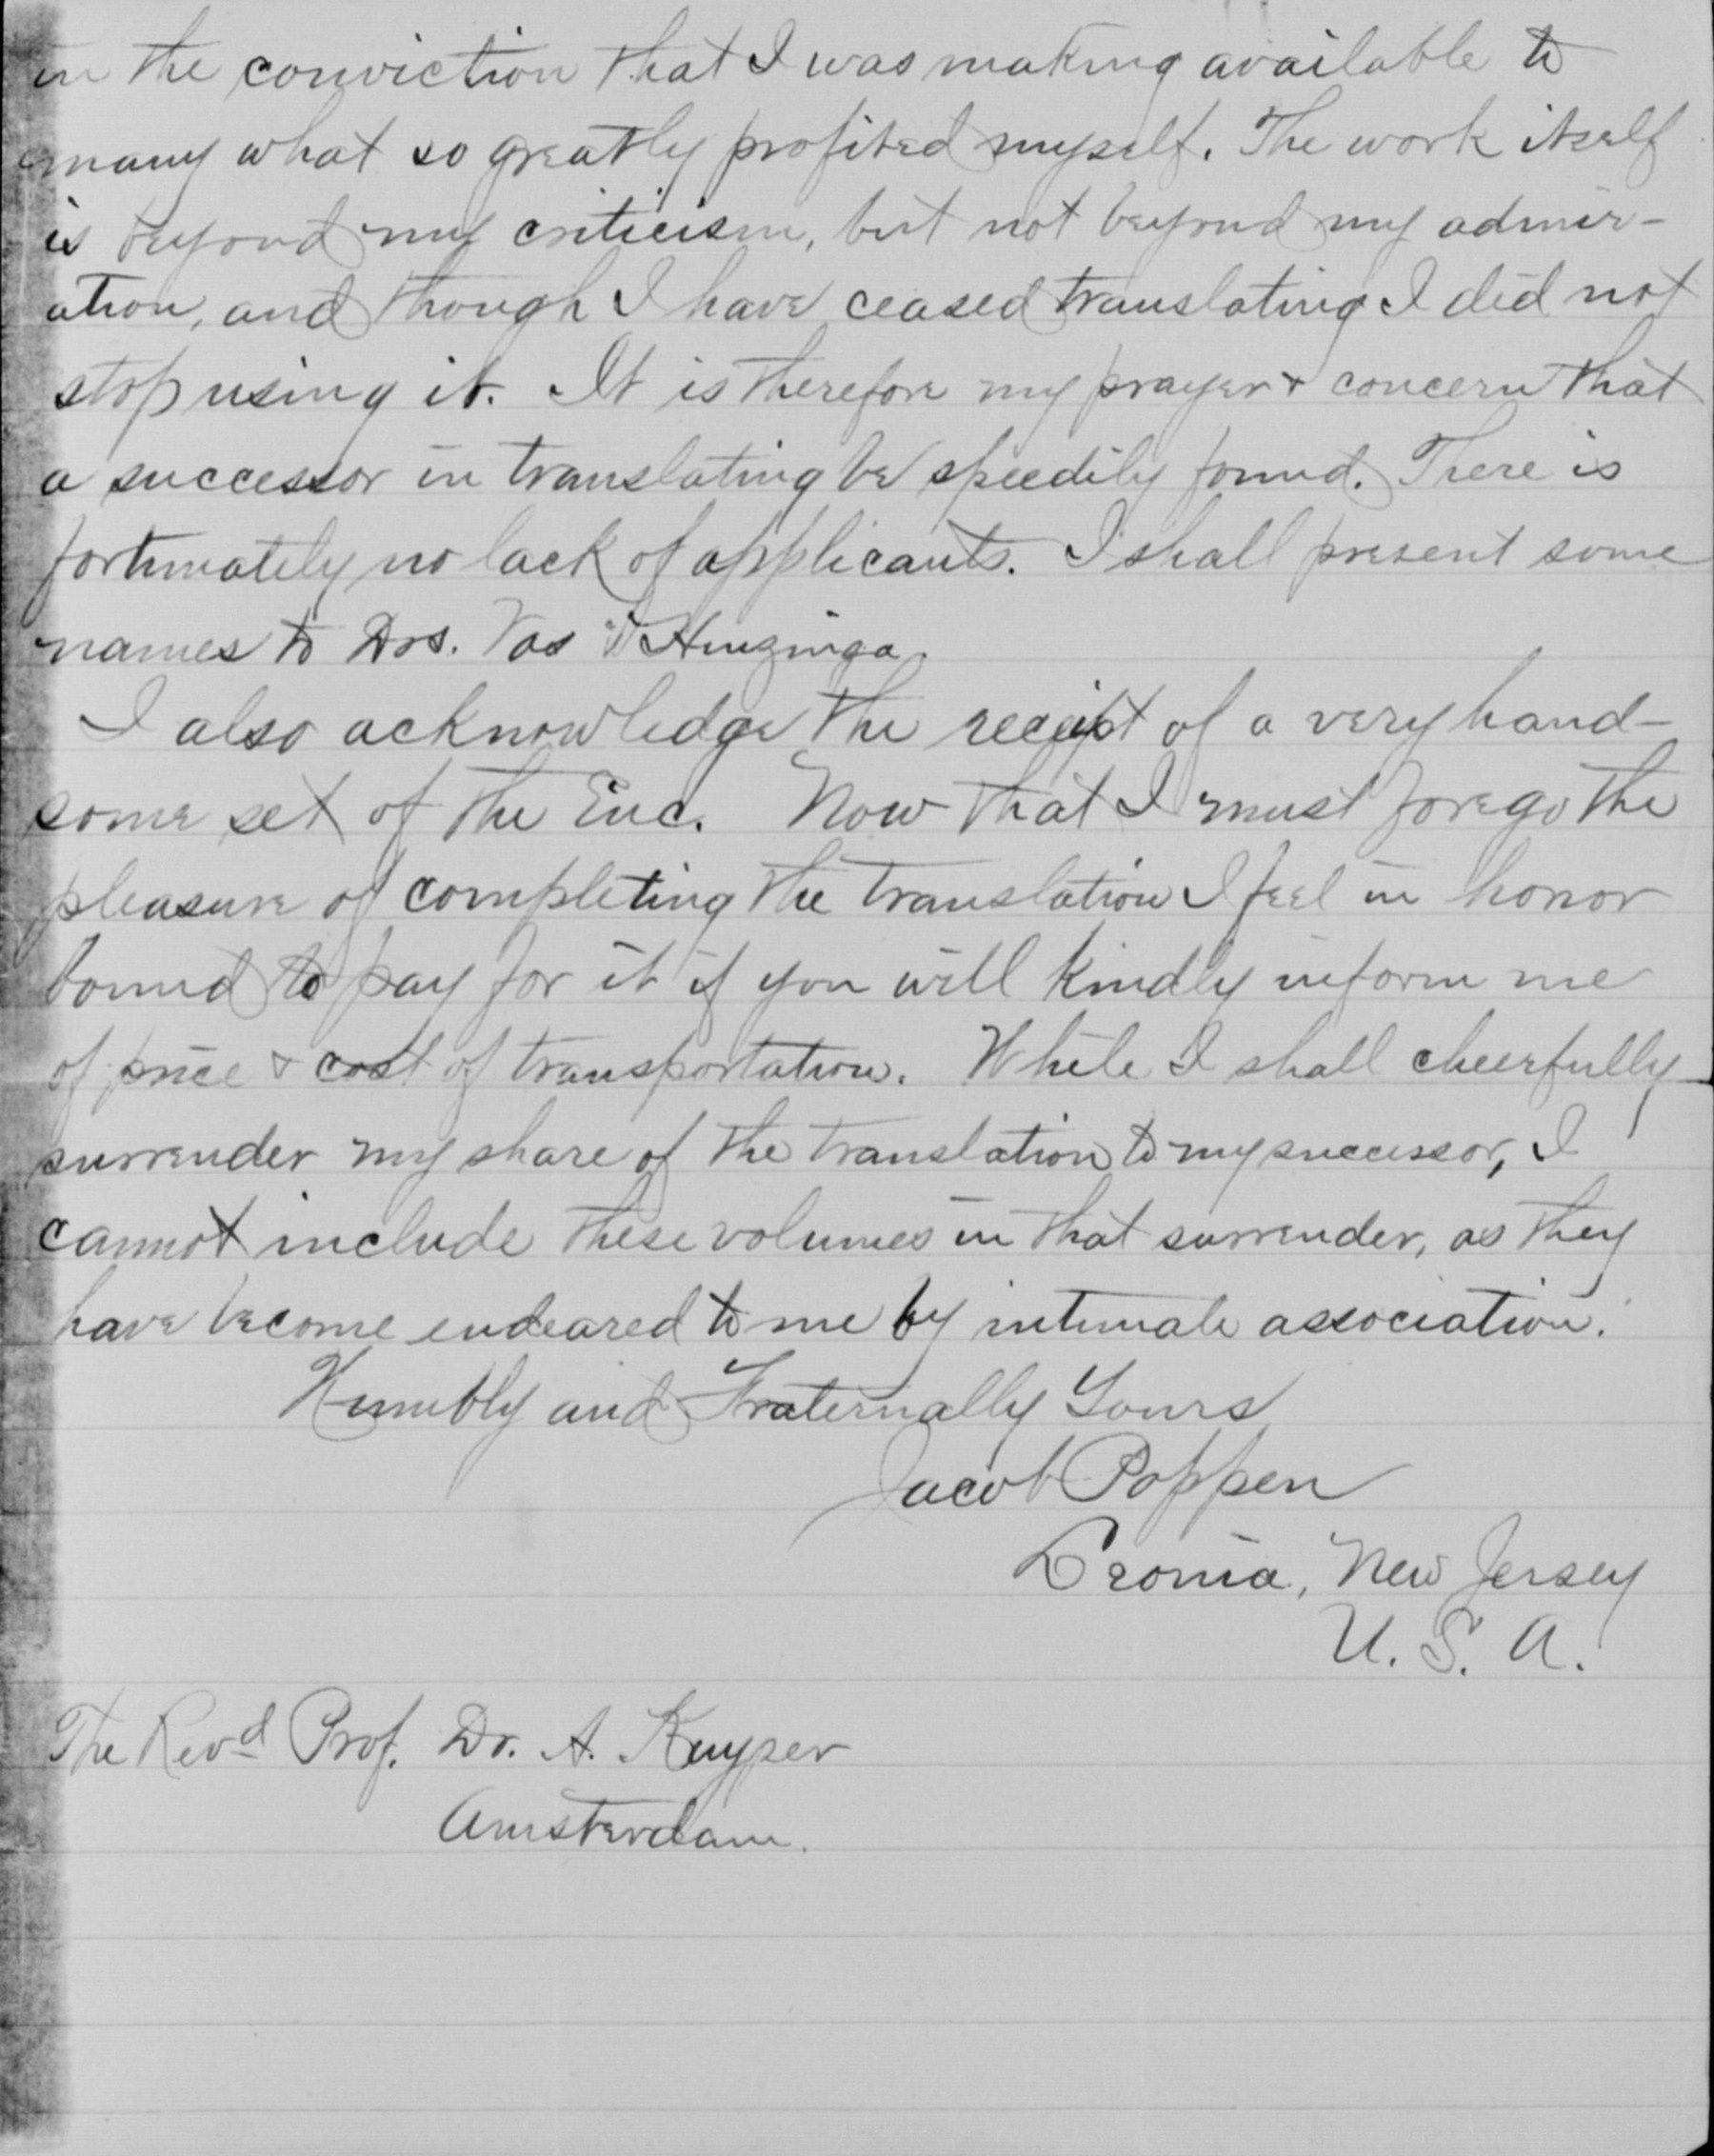 in the conviction that I was making available to
many what so greatly profited myself. The work itself
is beyond my criticism, but not beyond my admir-
ation, and though I have ceased translating I did not
stop using it. It is therefore my prayer & concern that
a successor in translating be speedily found. There is
fortunately no lack of applicants. I shall present some
names to Drs. Vos & Huizinga.
I also acknowledge the receipt of a very hand-
some set of the Enc. Now that I must forego the
pleasure of completing the translation I feel in honor
bound to pay for it if you will kindly inform me
of price & cost of transportation. While I shall cheerfully
surrender my share of the translation to my successor, I
cannot include these volumes in that surrender, as they
have become endeared to me by intimate association.
Humbly and Fraternally Yours
Jacob Poppen
Leonia, New Jersey
U. S. A.
The Revd Prof. Dr. A. Kuyper
Amsterdam.